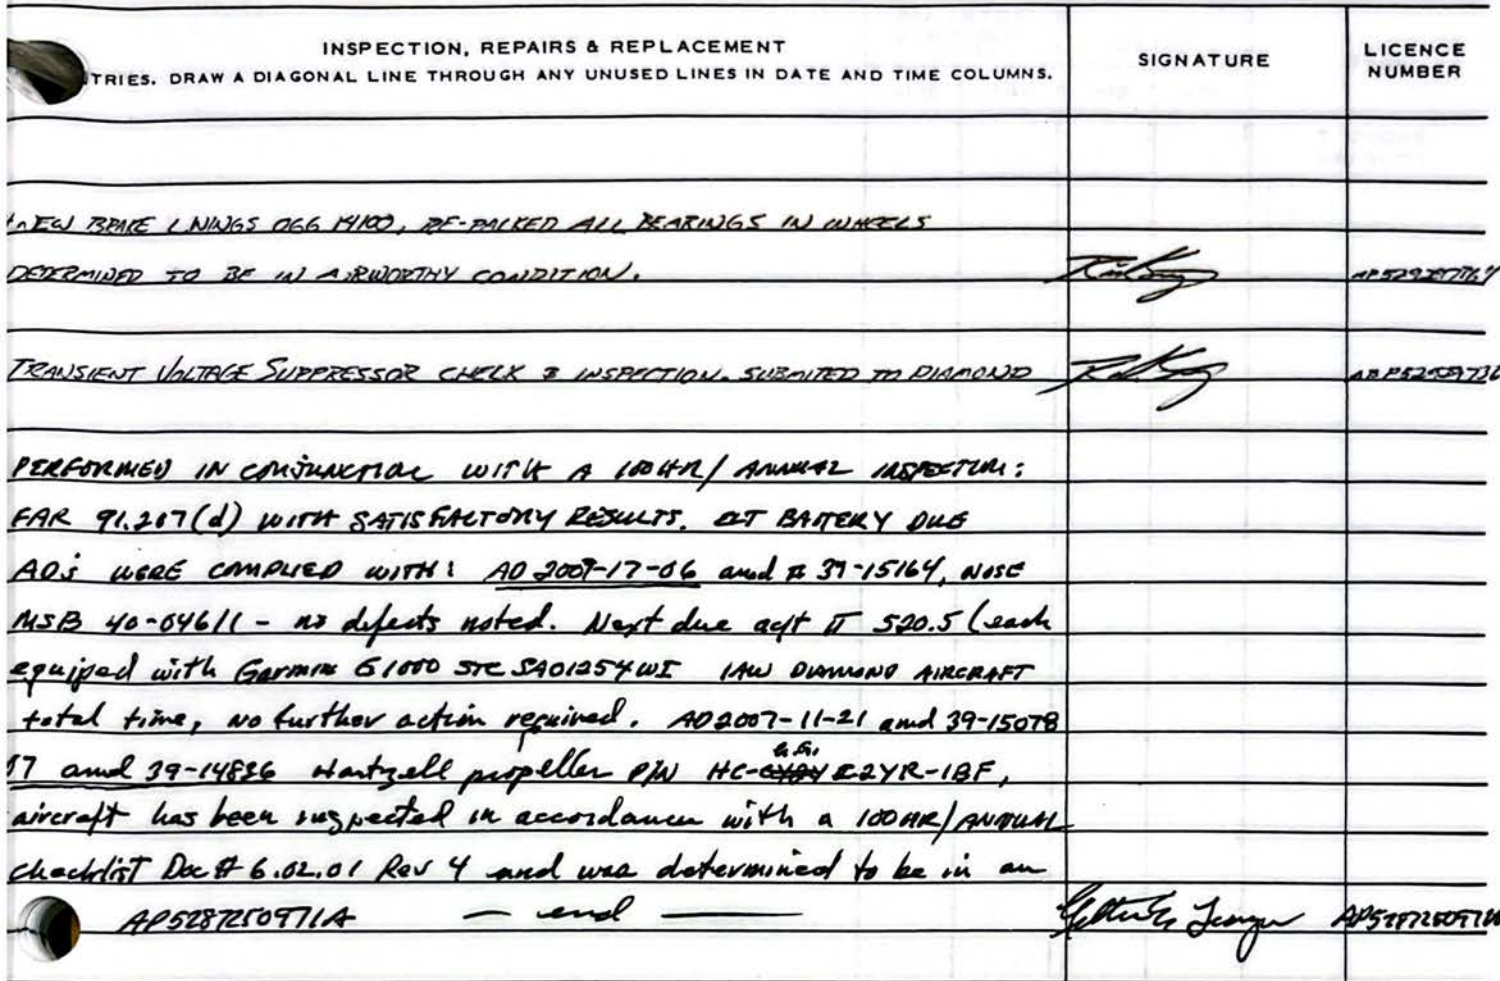 INSPECTION, REPAIRS & REPLACEMENT
TRIES. DRAW A DIAGONAL LINE THROUGH ANY UNUSED LINES IN DATE AND TIME COLUMNS.
SIGNATURE
LICENCE
NUMBER
NEW BRAKE LININGS 066 14100, RE-PACKED ALL BEARINGS IN WHEELS
DETERMINED TO BE IN AIRWORTHY CONDITION.
TRANSIENT VOLTAGE SUPPRESSOR CHECK & INSPECTION. SUBMITED TO DIAMOND
PERFORMED IN CONJUNCTION WITH A 100HR/ ANNUAL INSPECTION:
FAR 91.207(d) WITH SATISFACTORY RESULTS. ELT BATTERY DUE
ADs WERE COMPLIED WITH: AD 2007-17-06 amd # 39-15164, NOSE
MSB 40-046/1 - no defects noted. Next due acft TT 520.5 (each
equiped with Garmin G1000 STC SA01254WI IAW DIAMOND AIRCRAFT
total time, no further action required. AD2007-11-21 amd 39-15078
17 amd 39-14836 Hartzell propeller P/N HC-C2YR-1BF,
aircraft has been inspected in accordance with a 100HR/ANNUAL
checklist Doc # 6.02.01 Rev 4 and was determined to be in an
AP528725097IA — end —